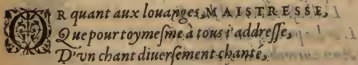 OR quant aux louanges, MAISTRESSE,
Que pour toymeſme à tous i'addreſſe,
D'vn chant diuerſement chanté,